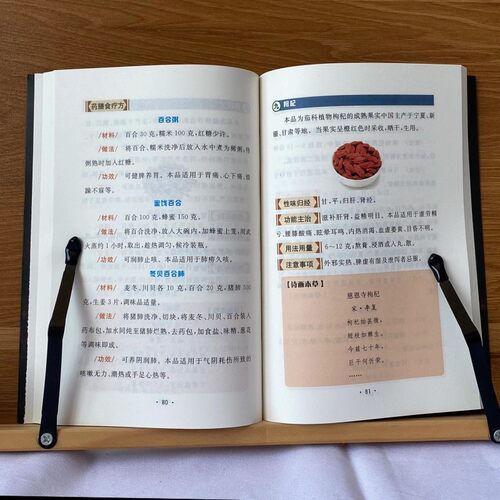 药膳食疗方
百合粥
/材料/ 百合30克,糯米100克,红糖少许。
/做法/ 将百合、糯米洗净后放入水中煮为稀粥,待
粥熟时加入红糖。
/功效/ 可健脾养胃。本品适用于胃痛、心下痛、烦
躁不寐等。
蜜饯百合
/材料/ 百合100克,蜂蜜150克。
/做法/ 将百合洗净,放入大碗内,加蜂蜜上笼,用武
火蒸约1小时,取出,趁热调匀,候冷装瓶。
/功效/ 可润肺止咳。本品适用于肺痨久咳。
冬贝百合肺
/材料/ 麦冬、川贝各10克,百合20克,猪肺500
克,生姜3片,调味品适量。
/做法/ 将猪肺洗净,切块,将麦冬、川贝、百合装入
药布包,加水同炖至猪肺烂熟,去药包,加食盐、味精、葱花
等调味即成。
/功效/ 可养阴润肺。本品适用于气阴耗伤所致的
咳嗽无力、潮热或手足心热等。
· 80 ·
枸杞
本品为茄科植物枸杞的成熟果实中国主产于宁夏、新
疆、甘肃等地。当果实呈橙红色时采收,晒干,生用。
性味归经 甘,平;归肝、肾经。
功能主治 滋补肝肾,益精明目。本品适用于虚劳精
亏,腰膝酸痛,眩晕耳鸣,内热消渴,血虚萎黄,目昏不明。
用法用量 6~12克,熬膏、浸酒或入丸、散。
注意事项 外邪实热、脾虚有湿及泄泻者忌服。
【诗画本草】
慈恩寺枸杞
宋·李复
枸杞始甚微,
短枝如棘生。
今兹七十年,
巨干何忻荣。
……
· 81 ·